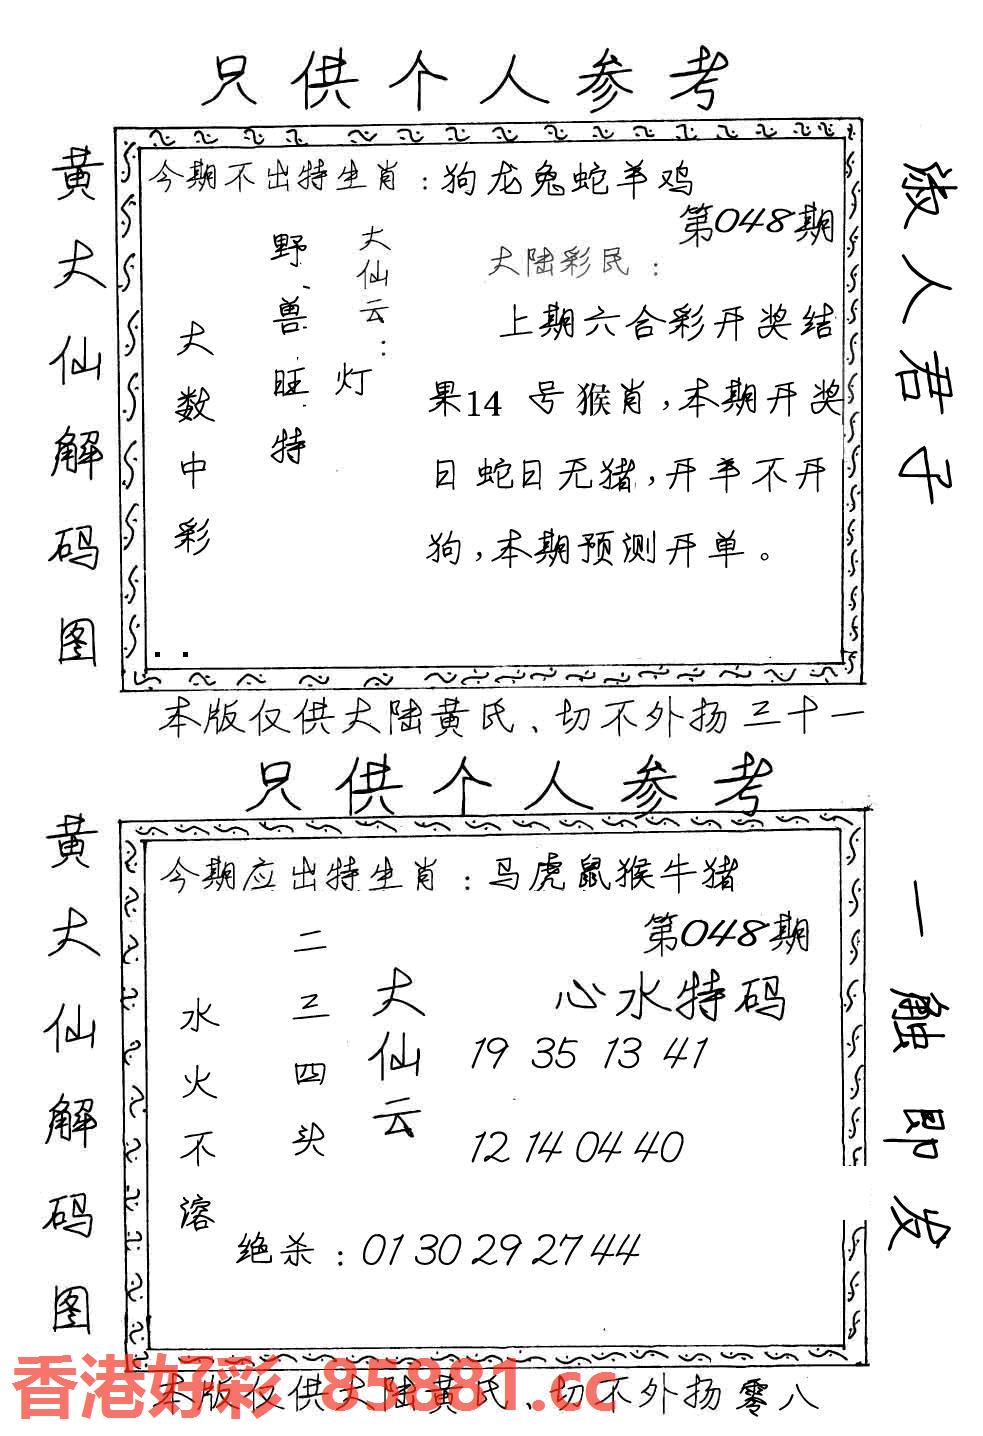 只供个人参考
黄大仙解码图
今期不出特生肖：狗龙兔蛇羊鸡
第048期
大仙云：
灯
野兽旺特
大数中彩
大陆彩民：
上期六合彩开奖结
果14 号猴肖，本期开奖
日蛇日无猪，开羊不开
狗，本期预测开单。
淑人君子
本版仅供大陆黄氏、切不外扬三十一
只供个人参考
黄大仙解码图
今期应出特生肖：马虎鼠猴牛猪
第048期
大仙云
二三四头
水火不溶
心水特码
19 35 13 41
12 14 04 40
绝杀：01 30 29 27 44
一触即发
香港好彩 85881.cc
本版仅供大陆黄氏、切不外扬零八